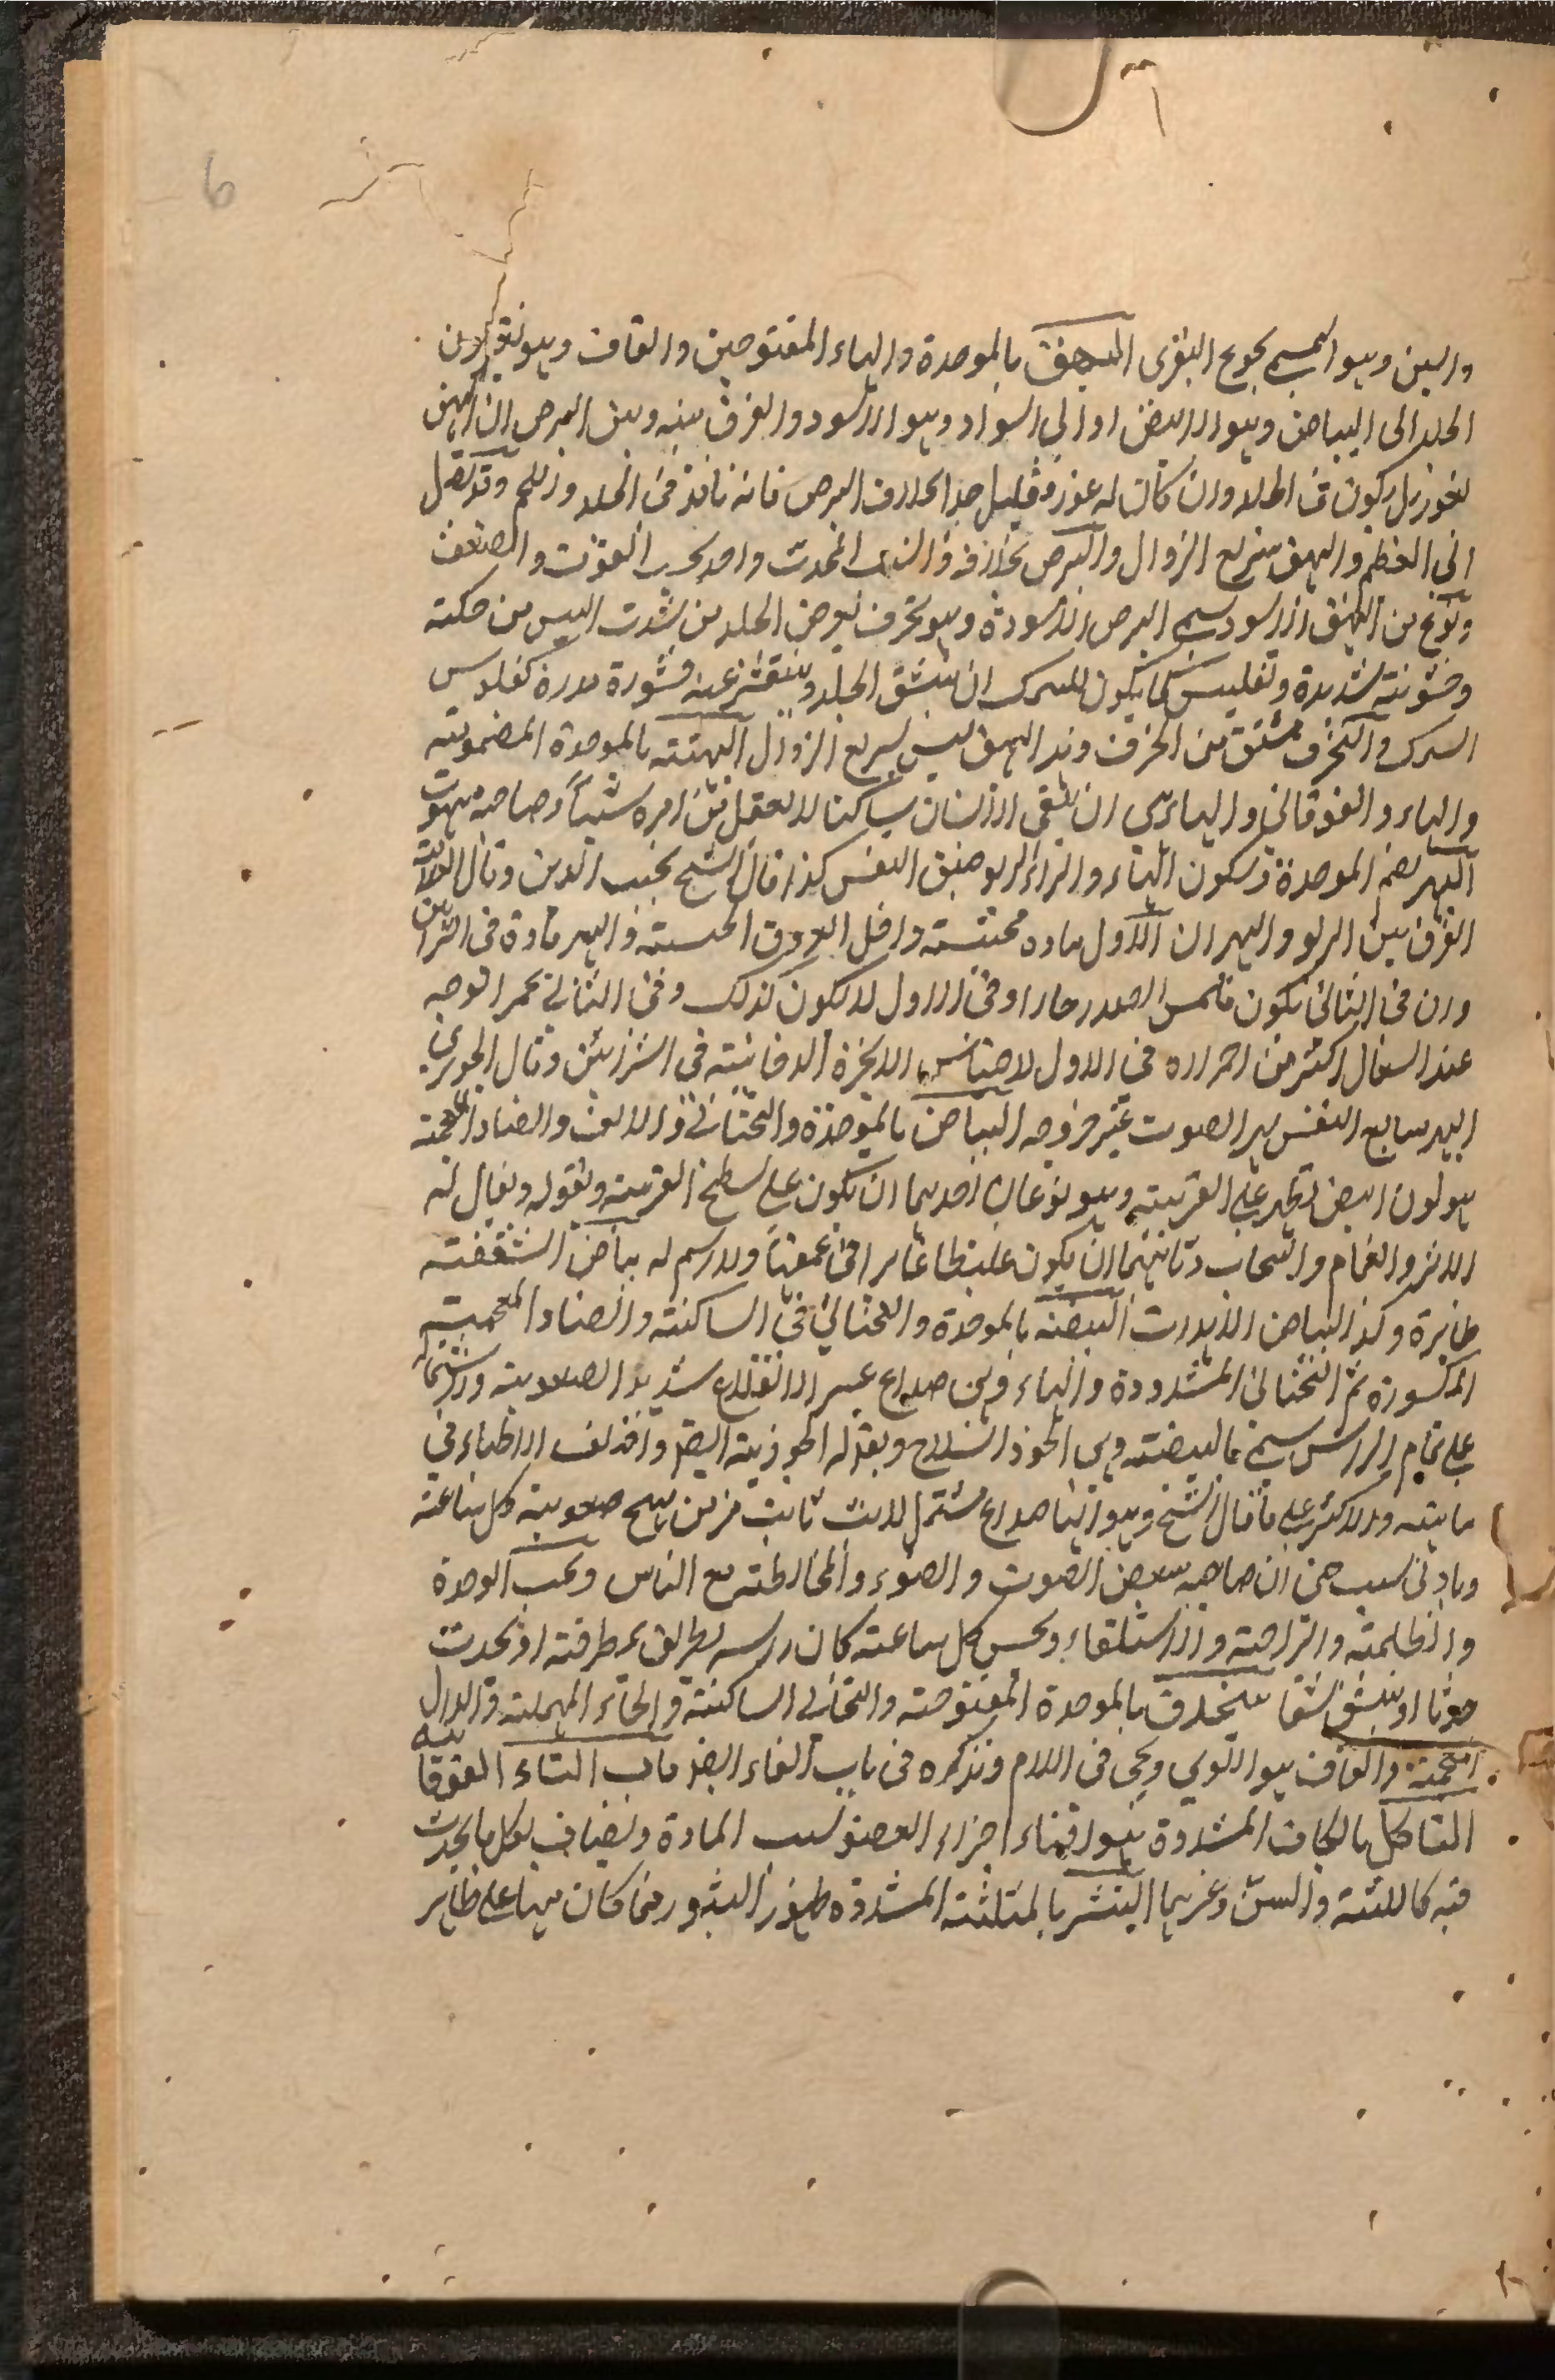 6
والسن وهو المسمى بجوع البقرى البهق بالموحدة والهاء المفتوحتين والقاف وهو تغير لون
الجلد الى البياض وهو الابيض او الى السواد وهو الاسود والفرق بينه وبين البرص ان البهق
يكون فى الجلد وان كان له غور فقليل جدا بخلاف البرص فانه نافذ فى الجلد واللحم وقد يصل
الى العظم والبهق سريع الزوال والبرص بخلافه والسبب المحدث واحد بحسب القوت والضعف
ونوع من البهق الاسود يسمى البرص الاسود وهو تحزف يعرض الجلد من شدت اليبس من حكة
وخشونته شديدة وتفليس كما يكون للسمك ان ينشق الجلد وينقشر عنه قشورة مدورة كفلوس
السمك والتحزف مشتق من الخزف وهذا البهق ليس سريع الزوال البهتة بالموحدة المضمومة
والهاء والفوقانى والهاء هى ان يبقى الانسان ساكنا لا يعقل من امره شيئا وصاحبه مبهوت
البهر بضم الموحدة وسكون الهاء والراء الربو ضيق النفس كذا قال الشيخ نجيب الدين وقال
الفرق بين الربو والبهر ان الاول ماده محتبسة داخل العروق الخشنة والبهر مادة فى الشرائين
وان فى الثانى يكون ملمس الصدر حارا وفى الاول لا يكون كذلك وفى الثانى يحمر الوجه
عند السعال اكثر من احمراره فى الاول لاحتباس الابخرة الدخانية فى الشرائين وقال الجوهرى
البهر تتابع النفس البياض بالموحدة والتحتانى والالف والضاد المعجمة
هو لون ابيض يظهر على القرنية وهو نوعان احدهما ان يكون على سطح القرنية ويقال له
الاثر والغمام والسحاب وثانيهما ان يكون غليظا غايرا فى عمقها ولا رسم له بياض الشقيقة
ظاهرة وكذا البياض البيضة بالموحدة والتحتانى الساكنة والضاد المعجمة
المكسورة ثم التحتانى المشددة والهاء وهى صداع عسر الانقلاع شديد الصعوبة ولاشتماله
على تمام الراس سمى بالبيضة وهى الخوذ السلاح ويقال له الخوذية ايضا واختلف الاطباء فى
ماهيته والاكثر على ما قال الشيخ وهو انها صداع مشتمل لابث ثابت مزمن يهيج صعوبة كل ساعة
وبادنى سبب حتى ان صاحبه يبغض الصوت والضوء والمخالطة مع الناس ويحب الوحدة
والظلمة والراحة والاستلقاء ويحس كل ساعة كان راسه يطرق بمطرقة او يجذب
جذبا او ينشق شقا بيخذق بالموحدة المفتوحة والتحتانى الساكنة والخاء المهملة والذال
المعجمة والقاف هو اللوى ويجئ فى اللام ونذكره فى باب الفاء ايضا باب التاء الفوقانيه
التاكل بالكاف المشددة هو افناء اجزاء العضو لسبب المادة ويضاف بعكل ما يحدث
فيه كاللثة والسن وغيرهما التبثر بالمثلثة المشددة ظهور البثور فما كان منها على ظاهر